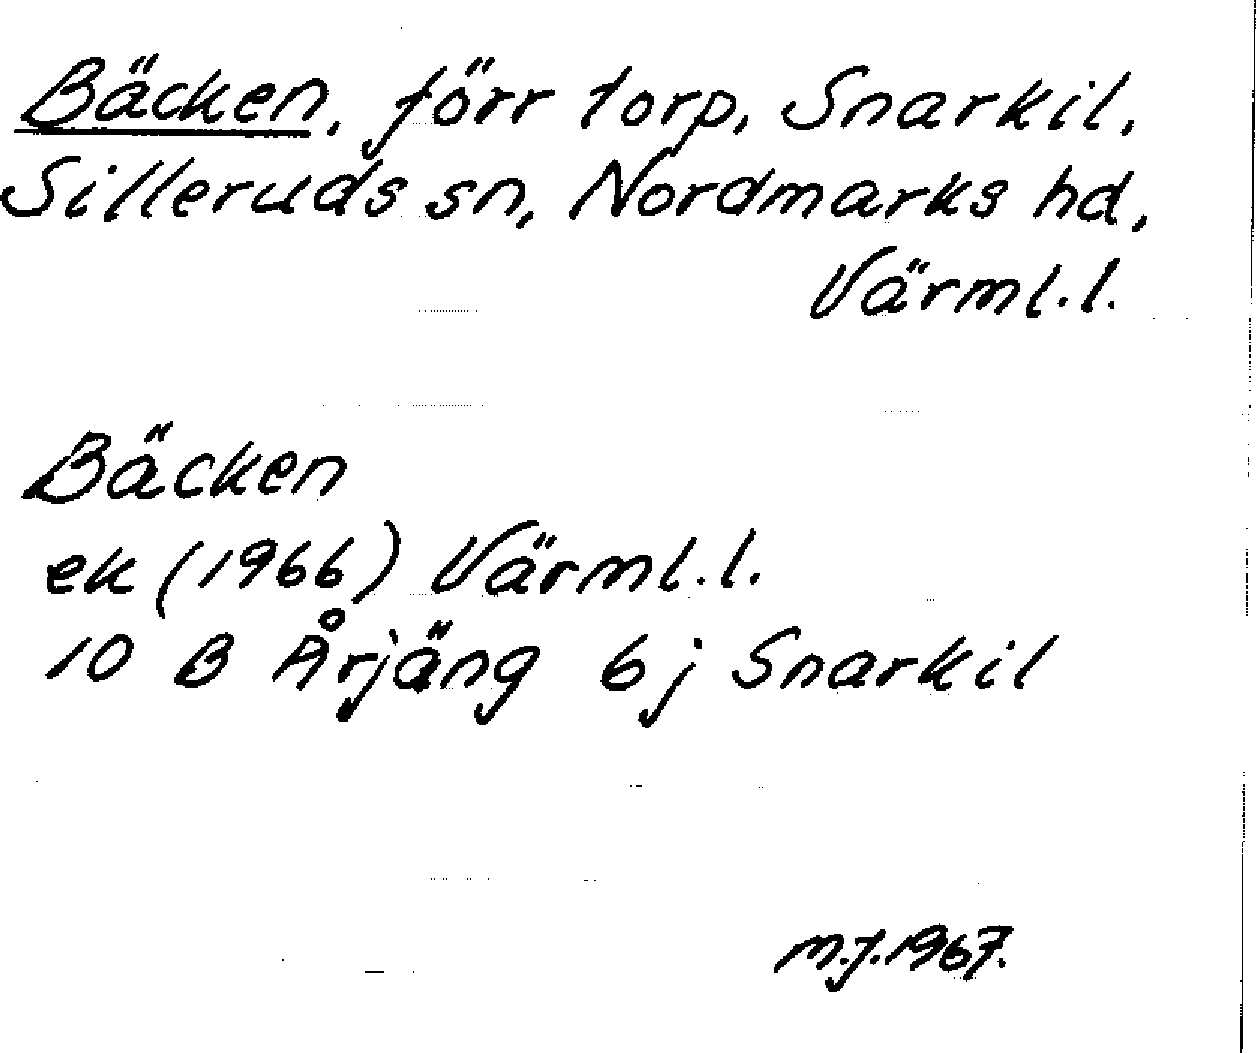 Bäcken, förr torp, Snarkil,
Silleruds sn, Nordmarks hd,
Värml. l.
Bäcken
ek (1966) Värml. l.
10 B Årjäng 6j Snarkil
m.j. 1967.